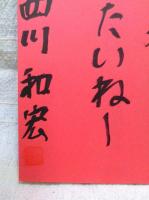 たいねー
四川和宏